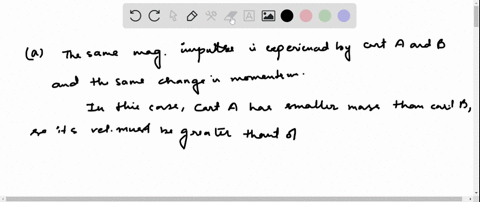 (a) The same mag. impulse is experienced by cart A and B
and the same change in momentum.
In this case, cart A has smaller mass than cart B,
so its vel. must be greater than of